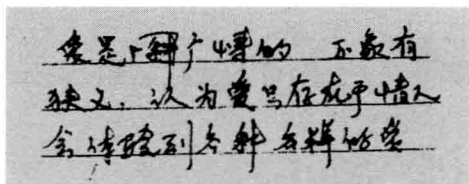 爱是一种广博的 不象有
狭义,认为爱只存在于情人
会体验到各种各样的爱